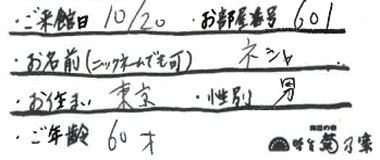 ・ご来館日 10/20 ・お部屋番号 601
・お名前(ニックネームでも可) ネシャ
・お住まい 東京 ・性別 男
・ご年齢 60才
味を菊乃家